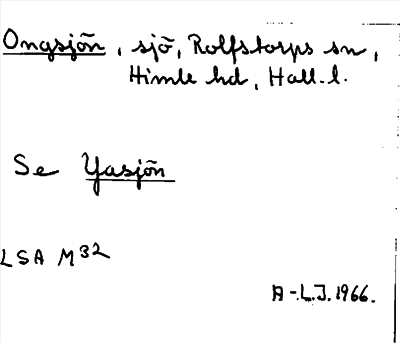 Ongsjön, sjö, Rolfstorps sn,
Himle hd, Hall. l.
Se Yasjön
LSA M32
A-L.J. 1966.